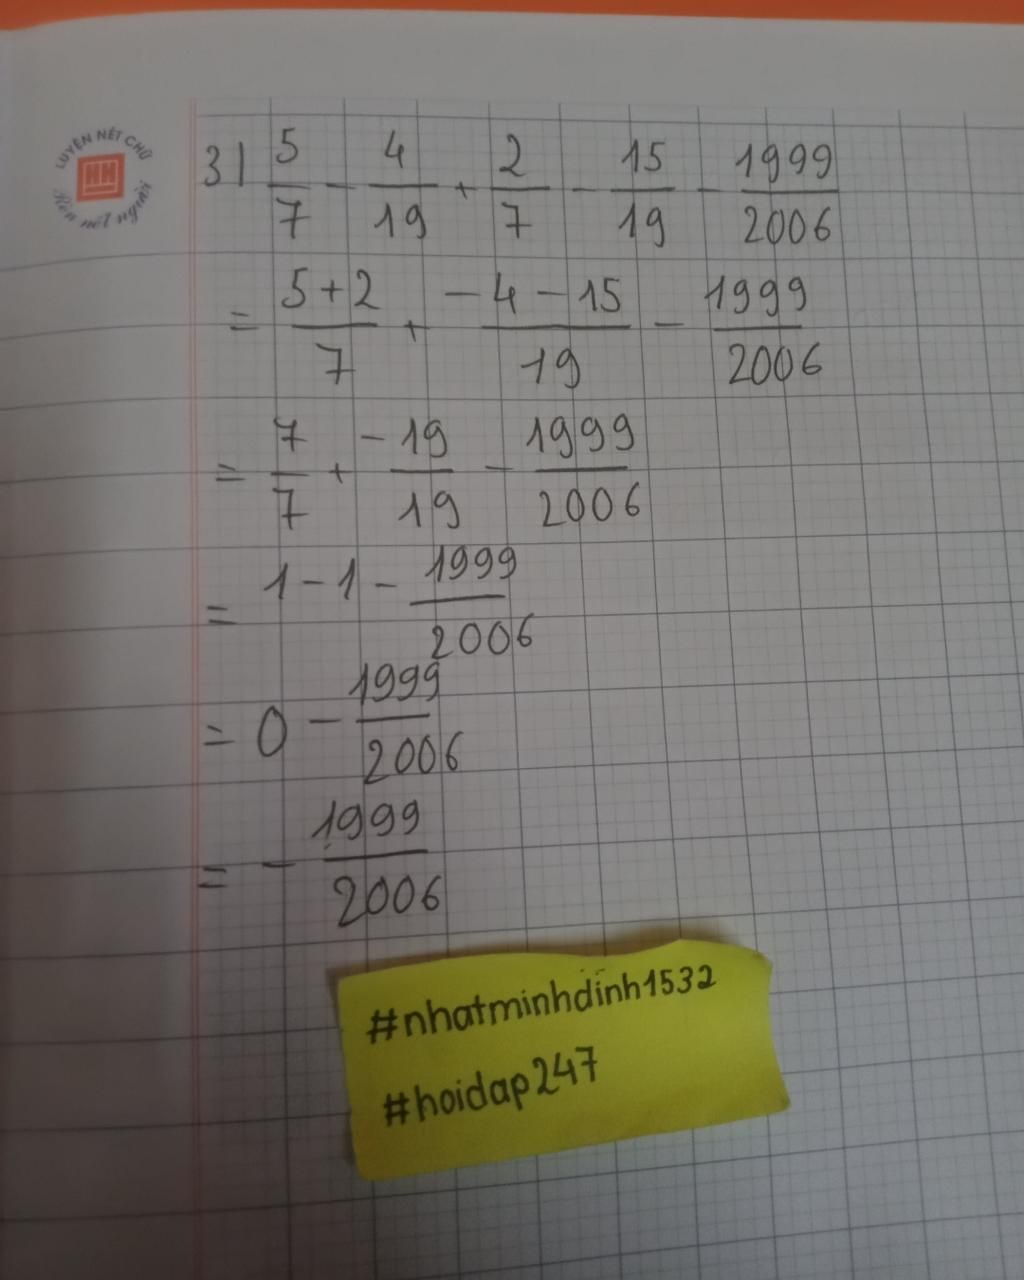 LUYỆN NÉT CHỮ
Rèn nết người
3) 5/7 - 4/19 + 2/7 - 15/19 - 1999/2006
= (5+2)/7 + (-4-15)/19 - 1999/2006
= 7/7 + -19/19 - 1999/2006
= 1-1- 1999/2006
= 0 - 1999/2006
= - 1999/2006
#nhatminhdinh1532
#hoidap247